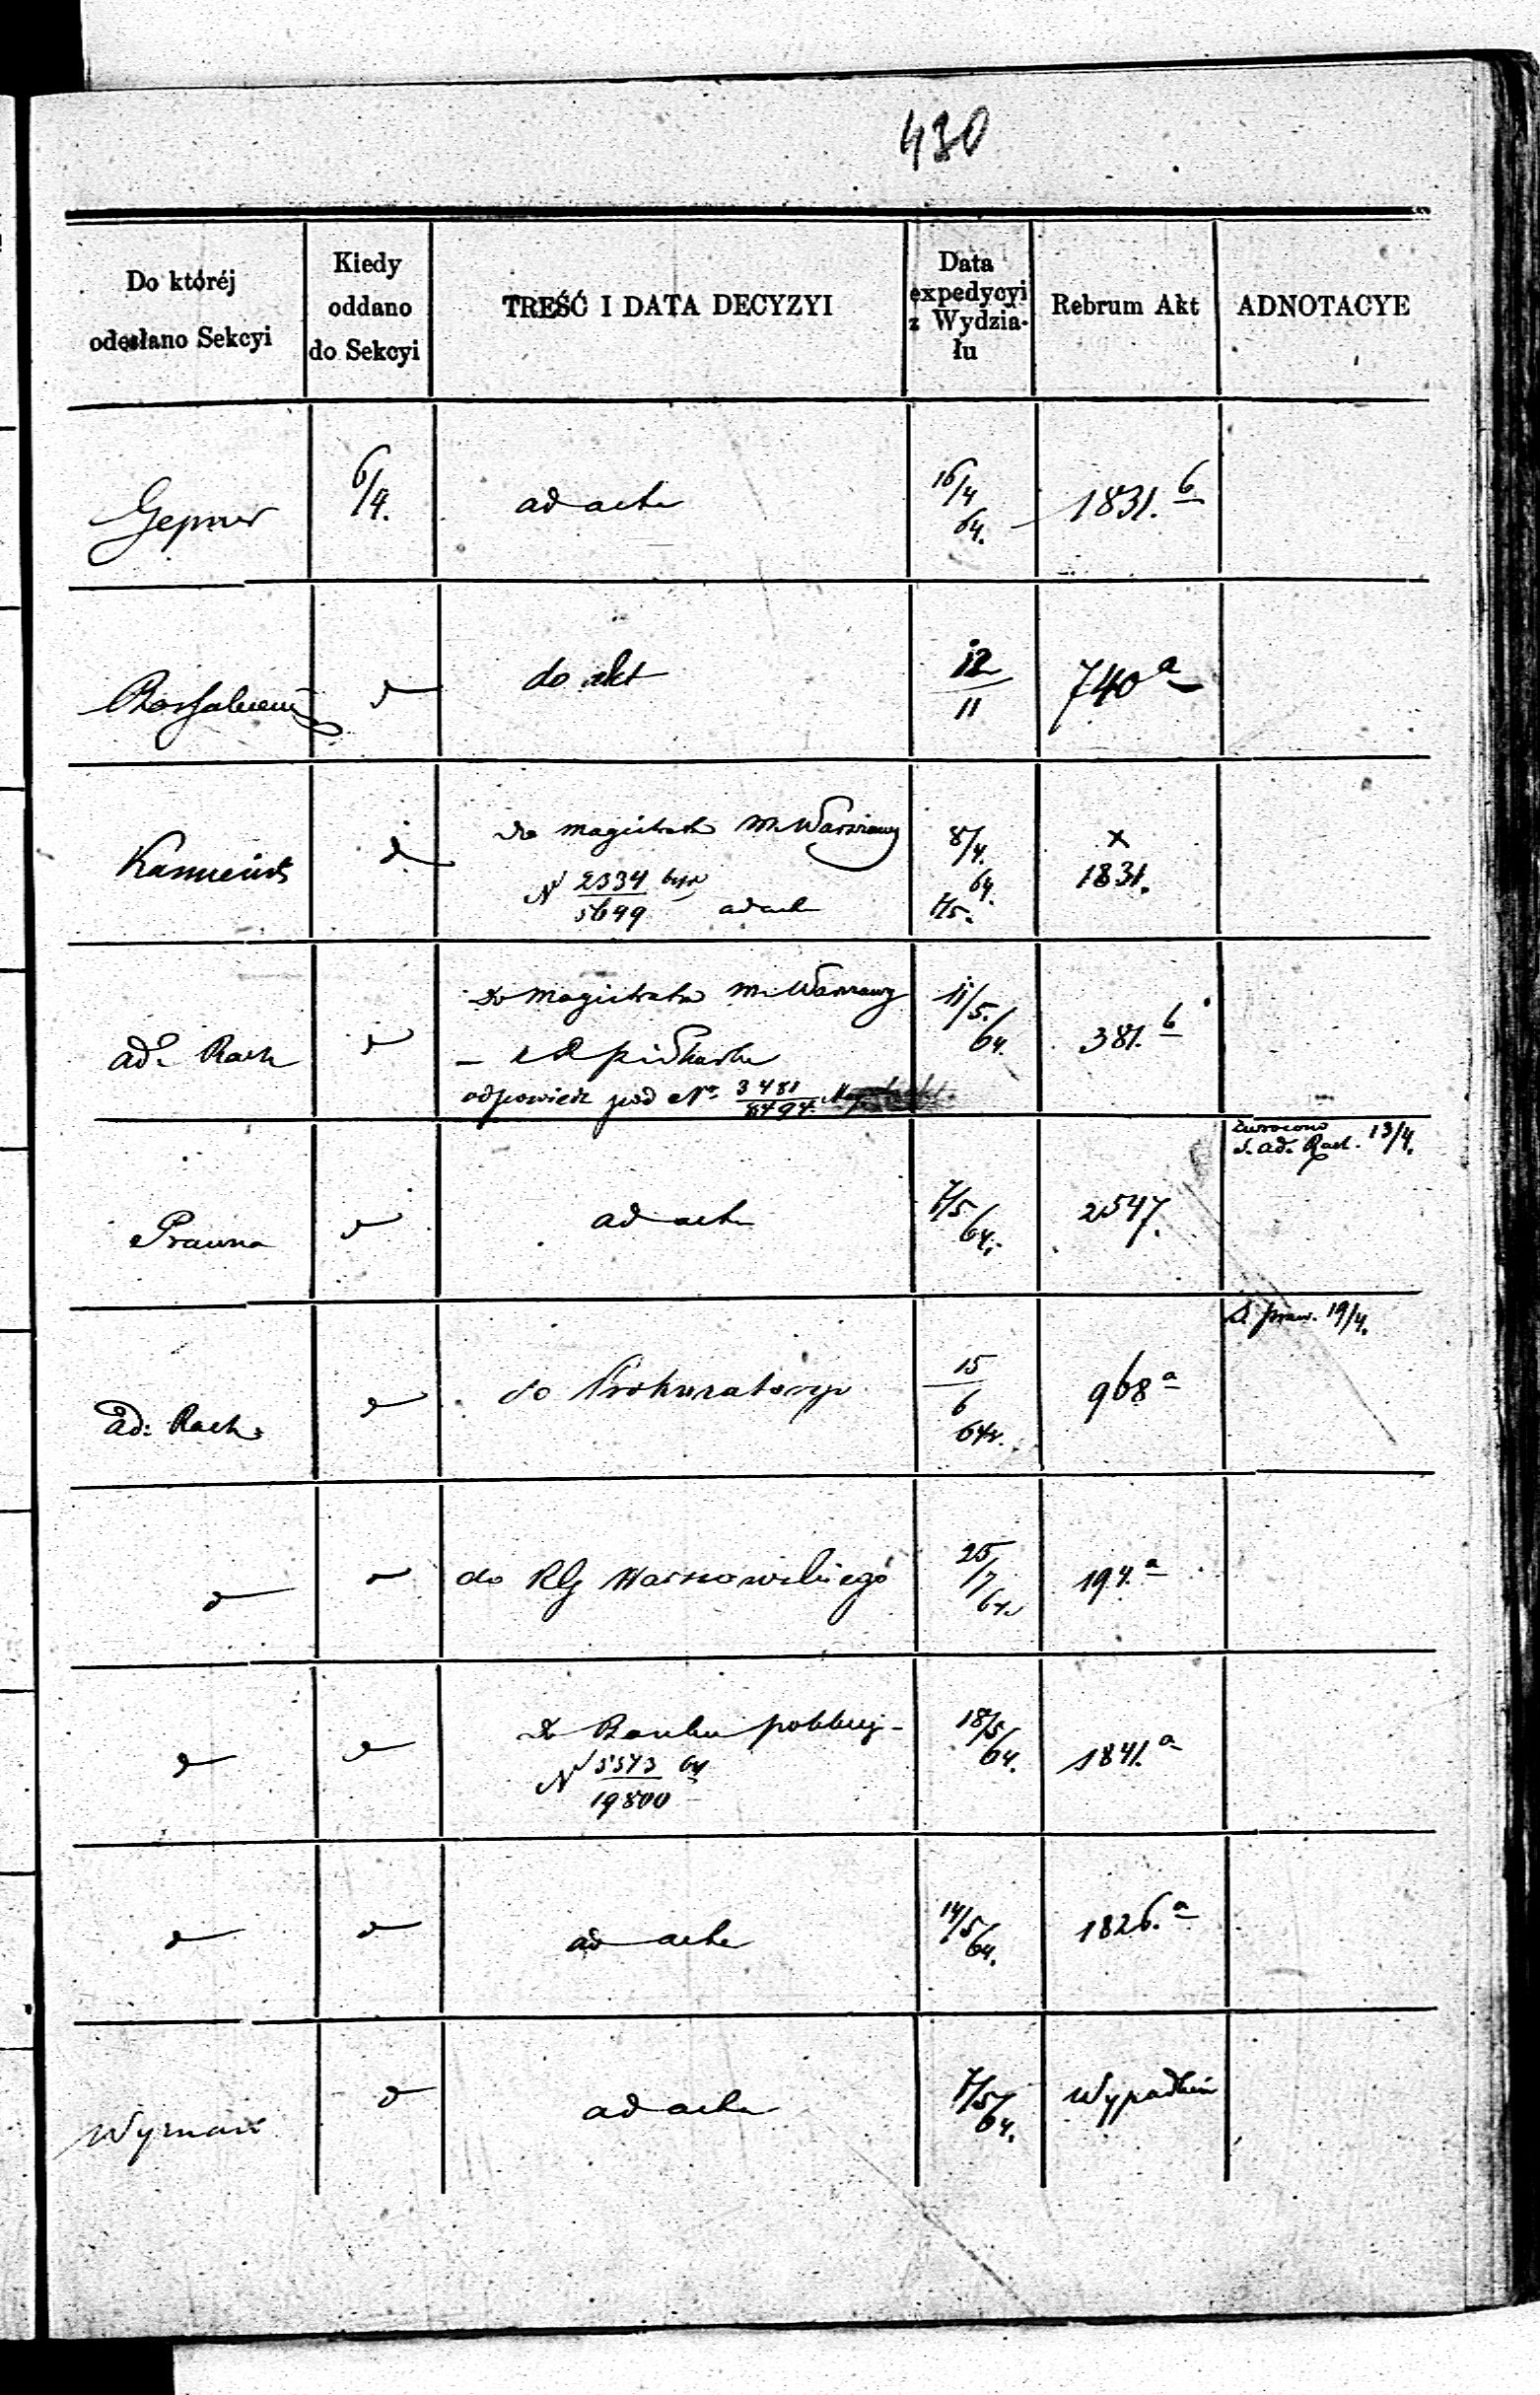 430
Do któréj
odesłano Sekcyi
Kiedy
oddano
do Sekcyi
TREŚĆ I DATA DECYZYI
Data
expedycyi
z Wydzia-
łu
Rebrum Akt
ADNOTACYE
Gepner
6/4.
ad acta
16/4
64.
1831. b
do akt
12
11
740 a
do magistratu m. Warszawy
N 2334
5699
ad acta
8/4.
64.
7/5.
x
1831.
ad. Rach
do Magistratu m. Warszawy
odpowiedz pod No 3481
8494.
11/5.
64.
381. b
Prawna
ad acta
7/5
64.
2547.
zwrocono
S. ad. Rach. 13/4.
ad: Rach.
do Prokuratoryi
15
6
64r.
968 a
S. praw. 19/4.
do RG Warszawskiego
25/7
64r
194. a
Do Banku polskiej
N 5573 64
19800
18/5
64.
1841. a
ad acta
14/5
64.
1826. a
ad acta
7/5
64.